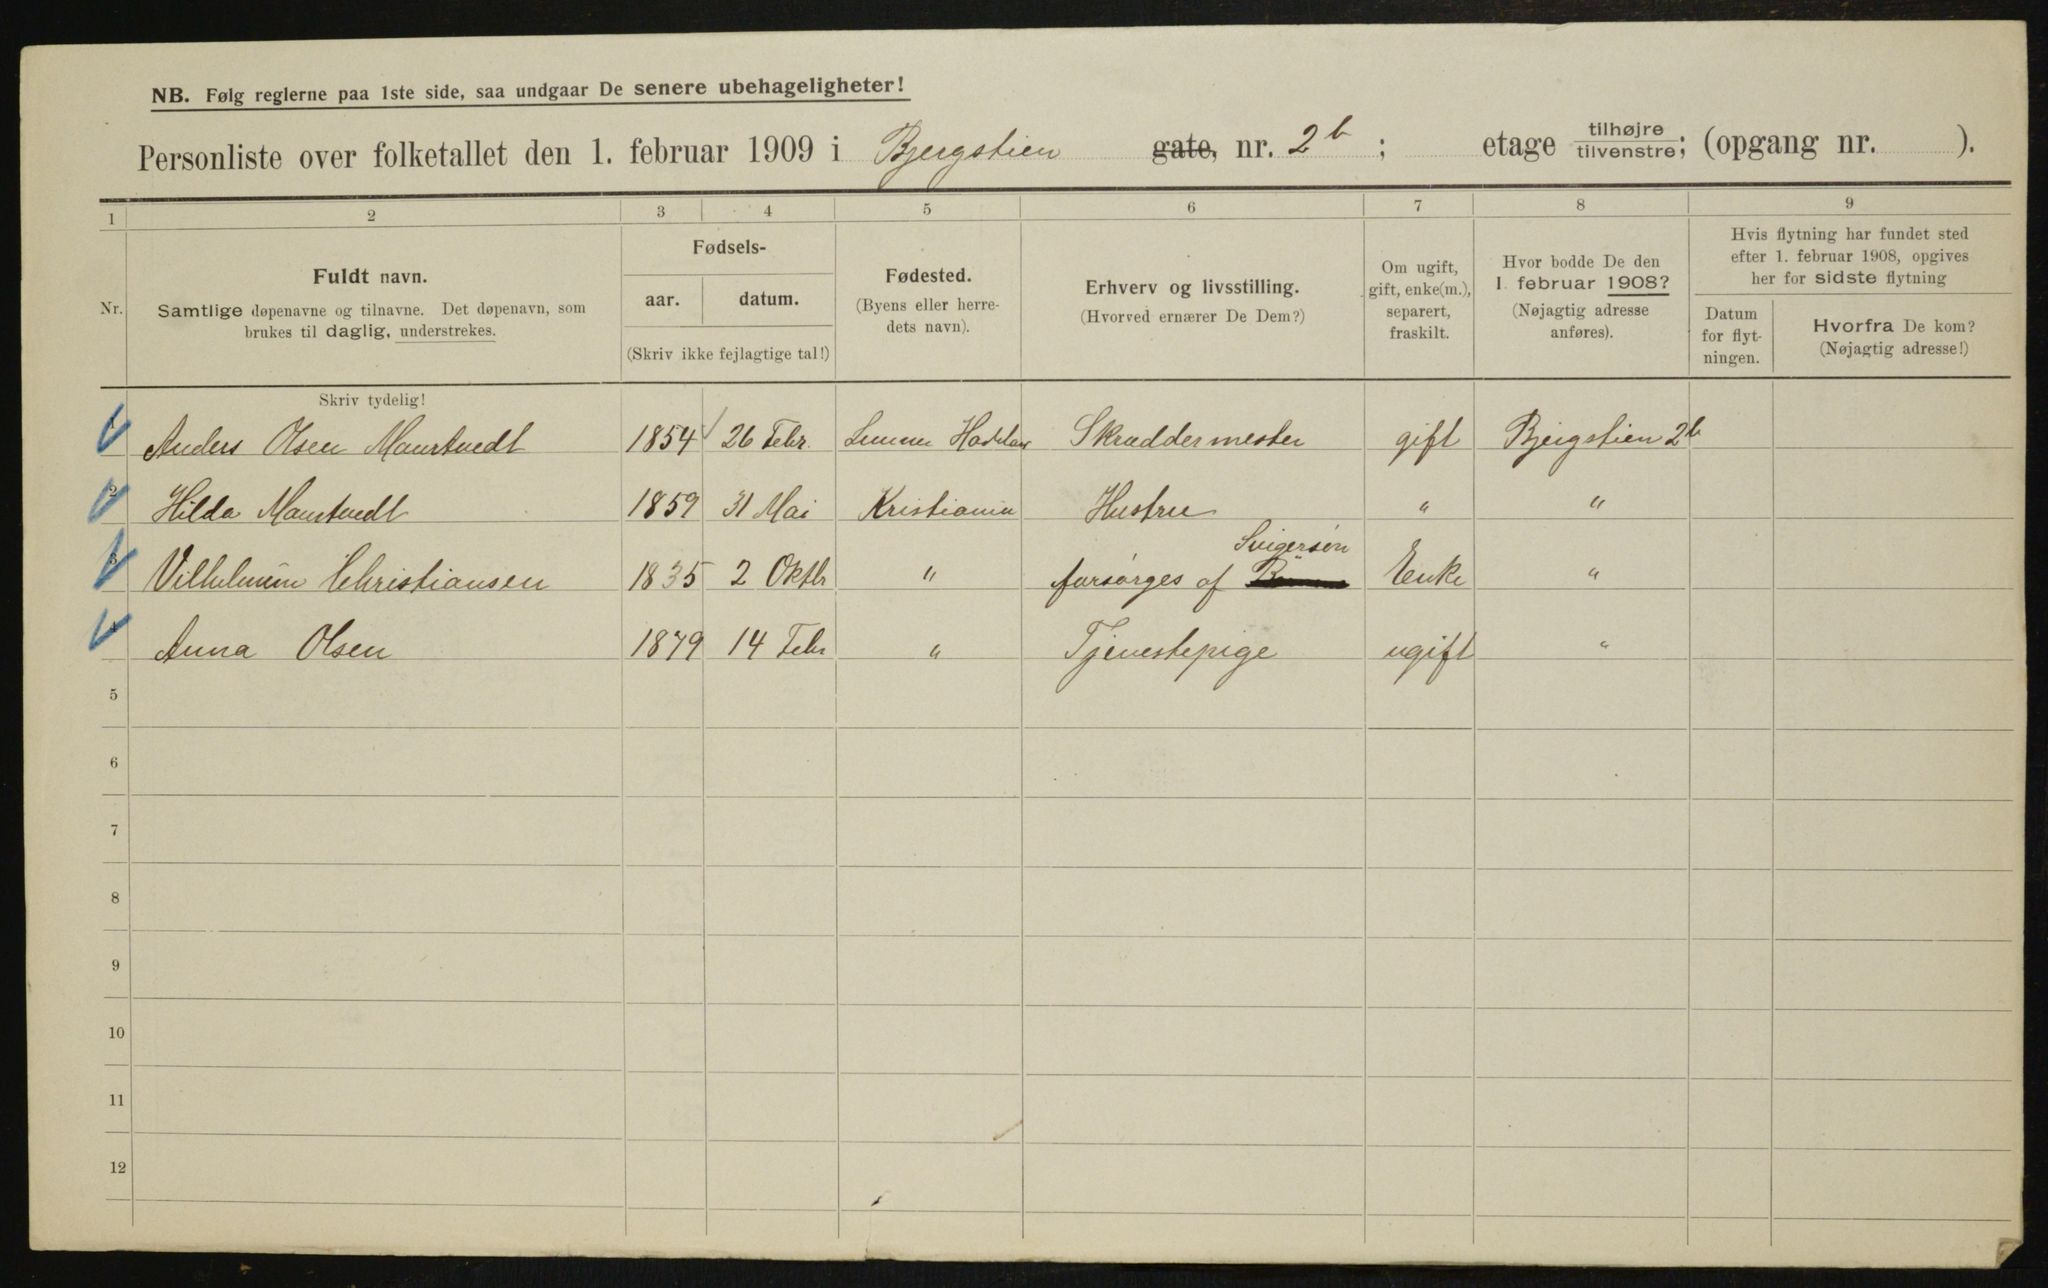 NB. Følg reglerne paa 1ste side, saa undgaar De senere ubehageligheter!
Personliste over folketallet den 1. februar 1909 i Bjergstien gate, nr. 2b ; etage tilhøjre tilvenstre; (opgang nr. ).
1 2 3 4 5 6 7 8 9
Nr.
Fuldt navn.
Samtlige døpenavne og tilnavne. Det døpenavn, som
brukes til daglig, understrekes.
Skriv tydelig!
Fødsels-
aar. datum.
(Skriv ikke fejlagtige tal!)
Fødested.
(Byens eller herre-
dets navn).
Erhverv og livsstilling.
(Hvorved ernærer De Dem?)
Om ugift,
gift, enke(m.),
separert,
fraskilt.
Hvor bodde De den
1. februar 1908?
(Nøjagtig adresse
anføres).
Hvis flytning har fundet sted
efter 1. februar 1908, opgives
her for sidste flytning
Datum
for flyt-
ningen.
Hvorfra De kom?
(Nøjagtig adresse!)
1 Anders Olsen Maurtvedt 1854 26 Febr. Lunner Hadeland Skræddermester gift Bjergstien 2b
2 Hilda Maurtvedt 1859 31 Mai Kristiania Hustru " "
Svigersøn
3 Vilhelmine Christiansen 1835 2 Oktbr " forsørges af Enke "
4 Anna Olsen 1879 14 Febr " Tjenestepige ugift "
5
6
7
8
9
10
11
12